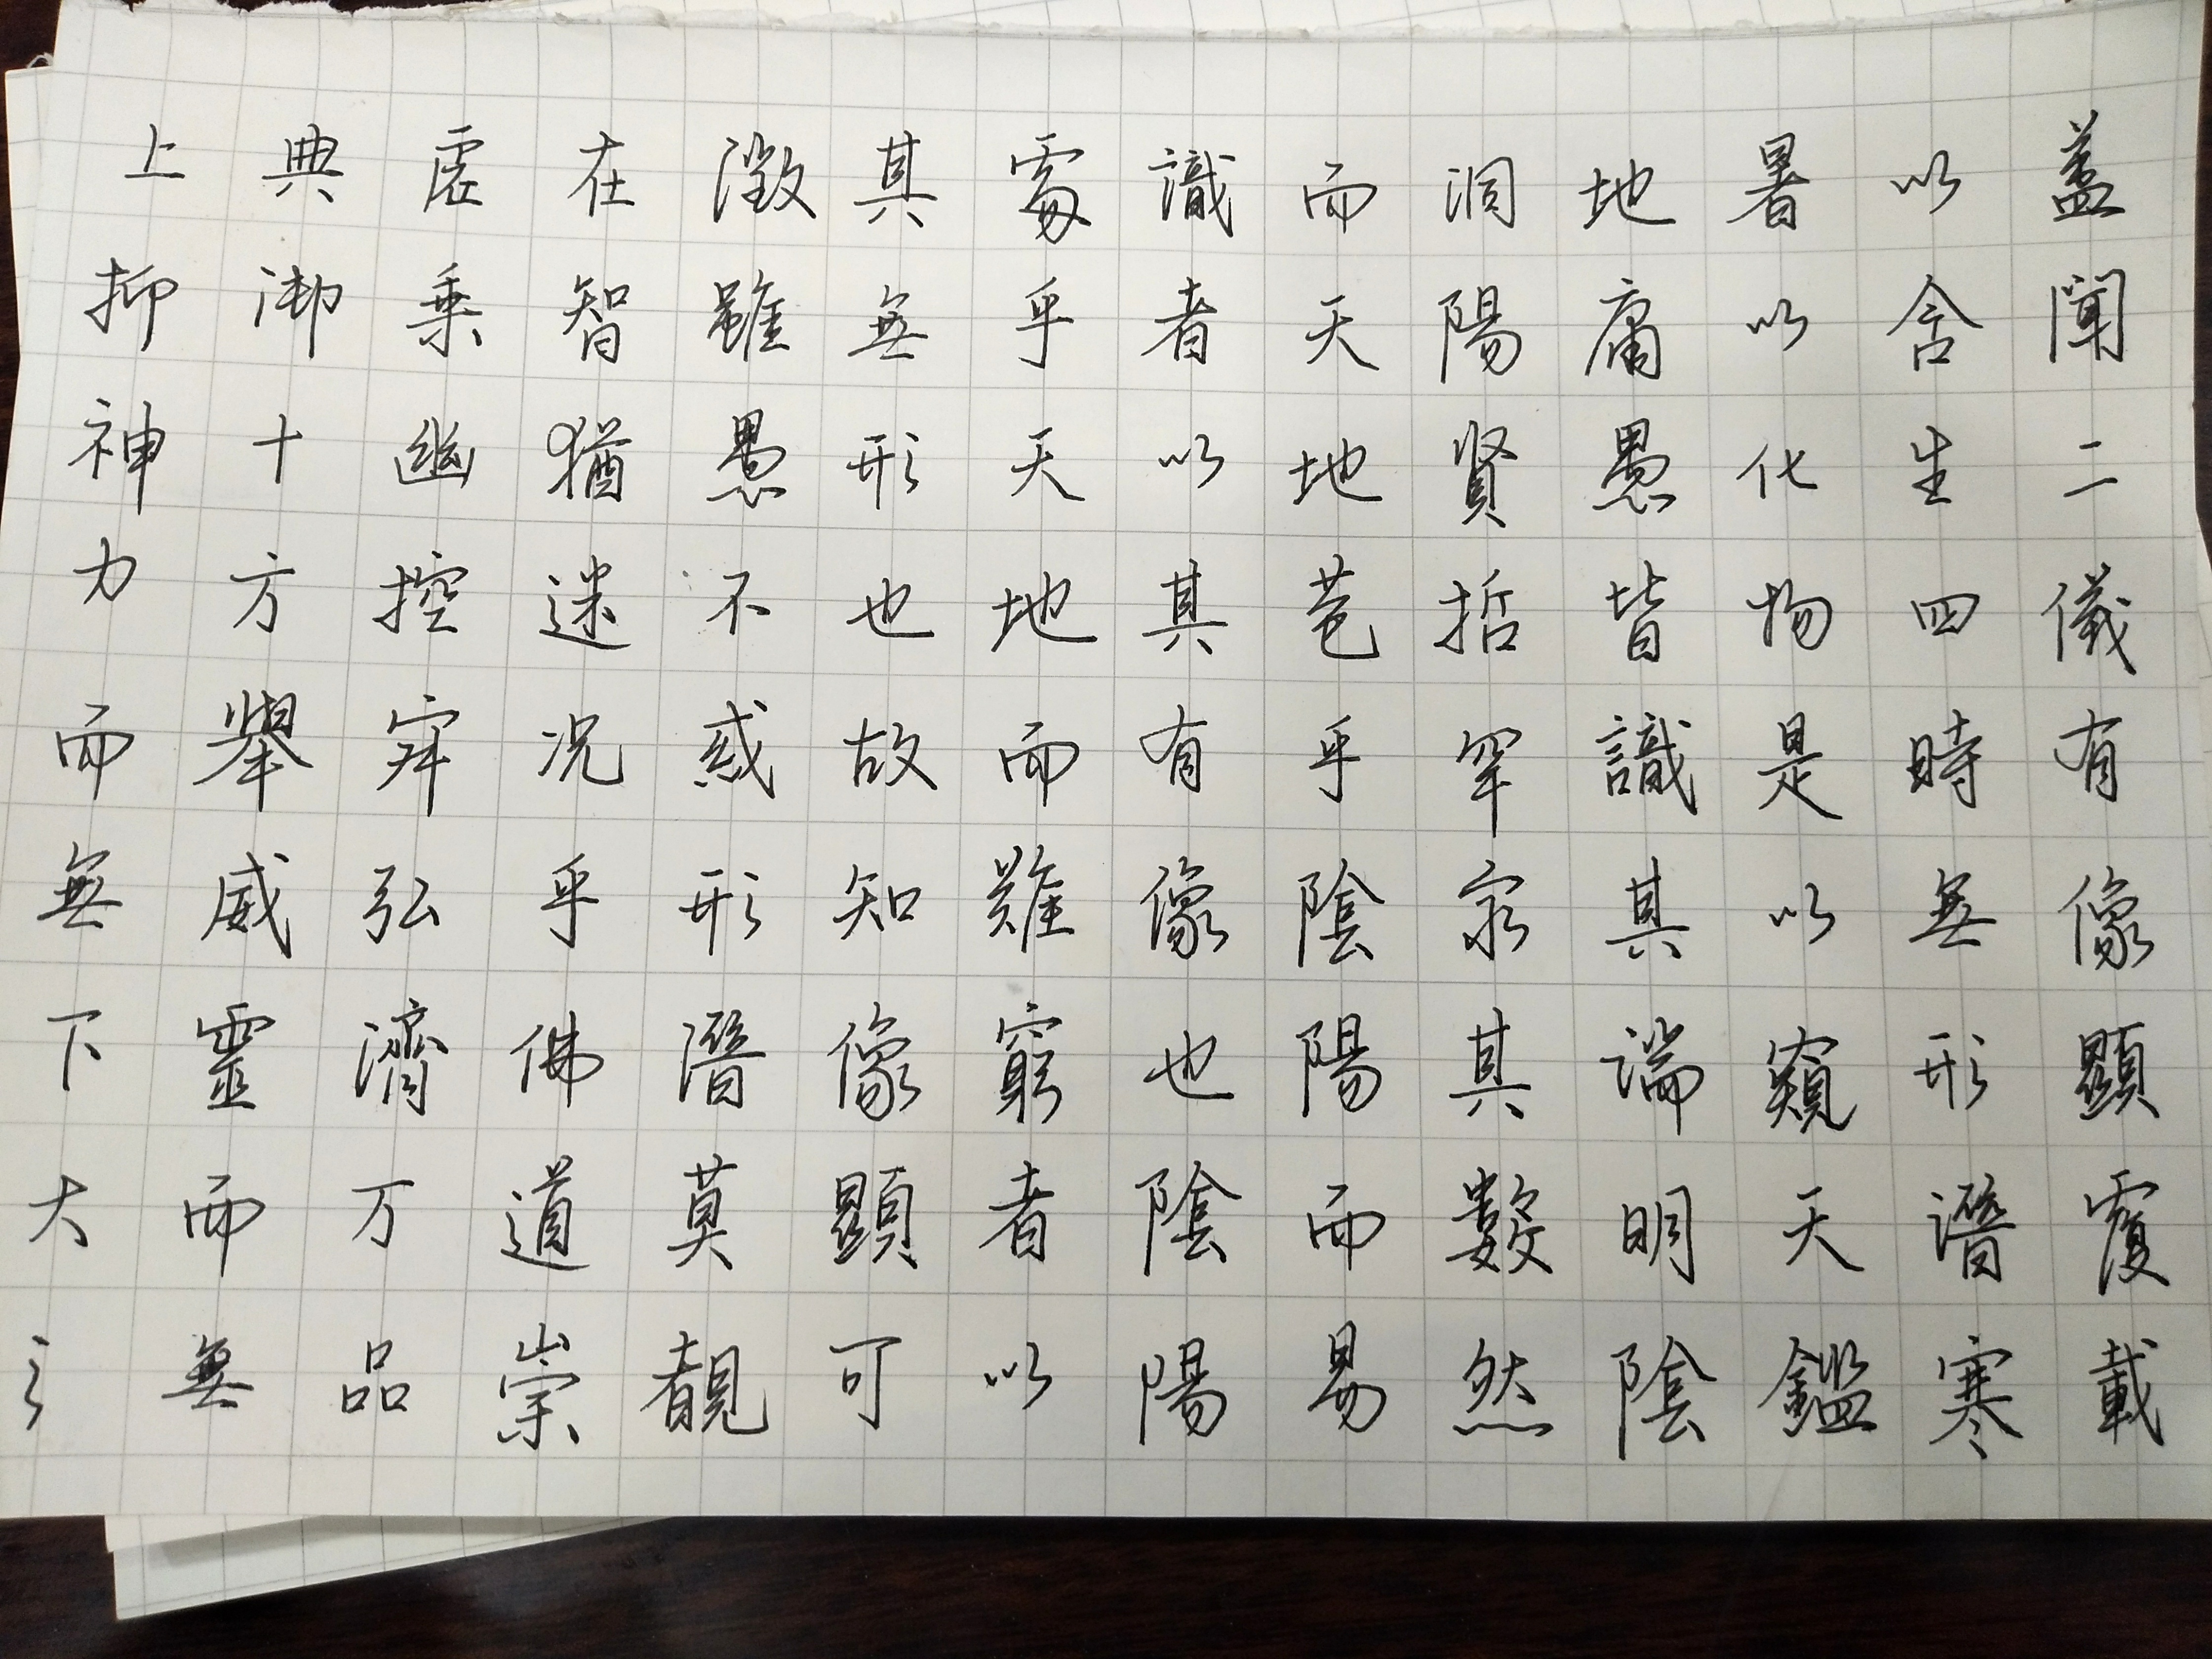 盖聞二儀有像顯覆載
以含生四時無形潛寒
暑以化物是以窺天鑑
地庸愚皆識其端明陰
洞陽賢哲罕窮其數然
而天地苞乎陰陽而易
識者以其有像也陰陽
處乎天地而難窮者以
其無形也故知像顯可
徵雖愚不惑形潛莫覩
在智猶迷況乎佛道崇
虛乘幽控寂弘濟万品
典御十方舉威靈而無
上抑神力而無下大之